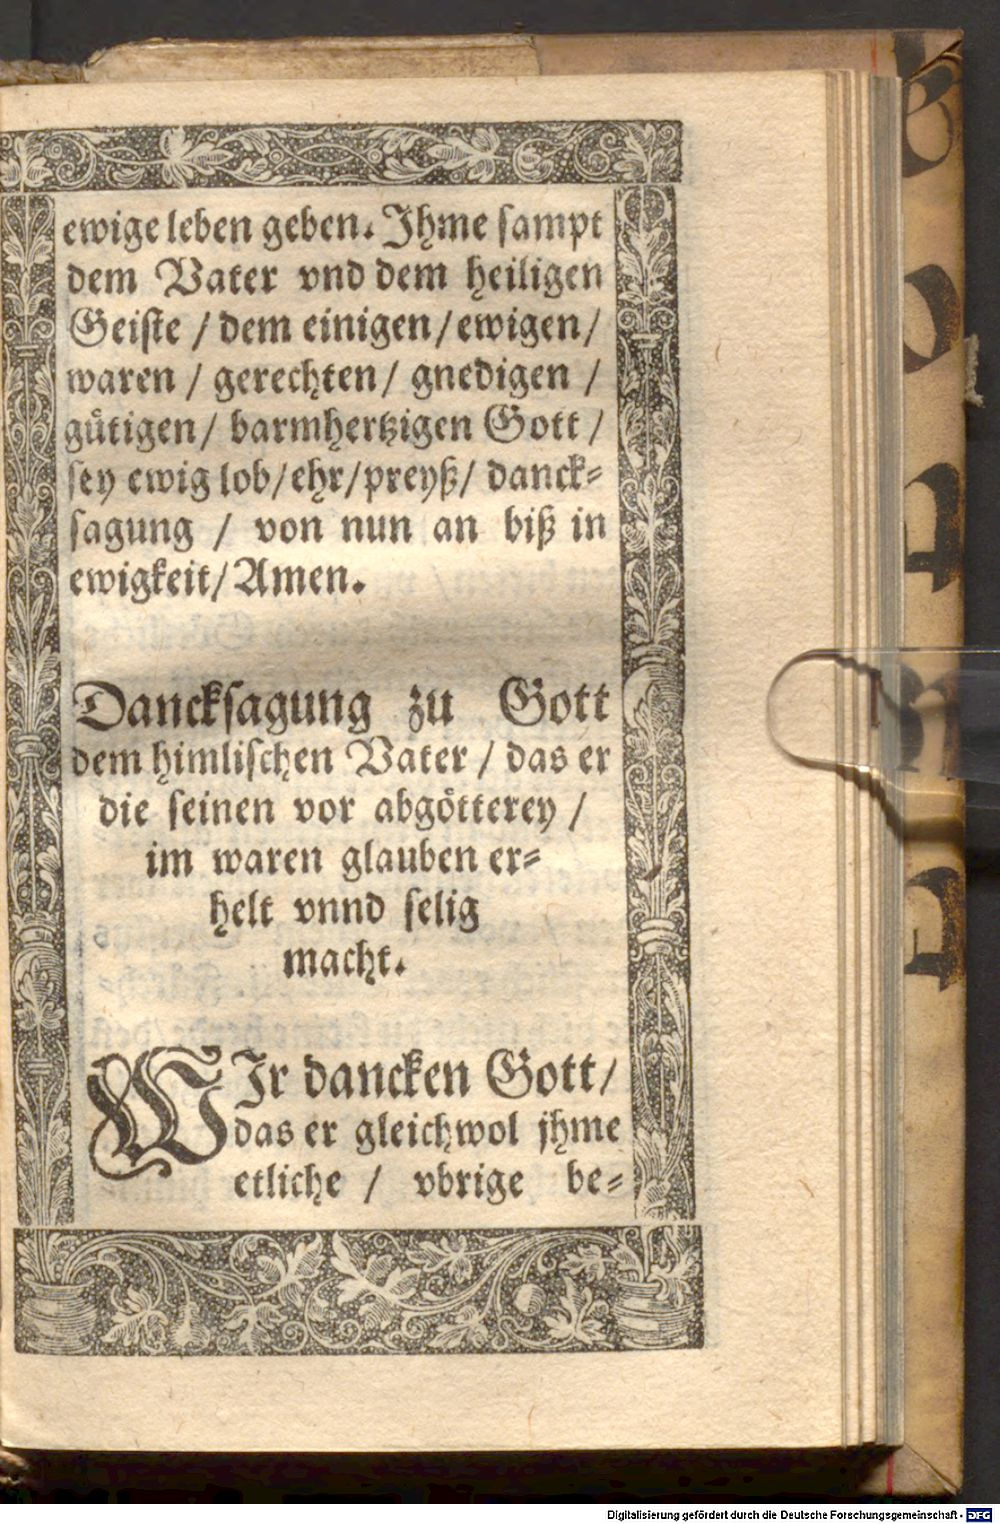 ewige leben geben. Ihme sampt
dem Vater vnd dem heiligen
Geiste / dem einigen / ewigen /
waren / gerechten / gnedigen /
gütigen / barmhertzigen Gott /
sey ewig lob / ehr / preyß / danck⸗
sagung / von nun an biß in
ewigkeit / Amen.
Dancksagung zu Gott
dem himlischen Vater / das er
die seinen vor abgötterey /
im waren glauben er⸗
helt vnnd selig
macht.
WIr dancken Gott /
das er gleichwol jhme
etliche / vbrige be⸗
Digitalisierung gefördert durch die Deutsche Forschungsgemeinschaft - DFG